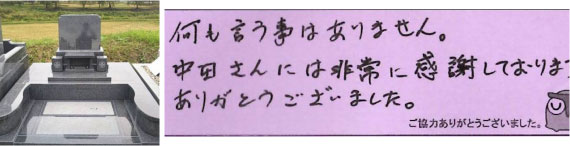 何も言う事はありません。
中田さんには非常に感謝しております
ありがとうございました。
ご協力ありがとうございました。